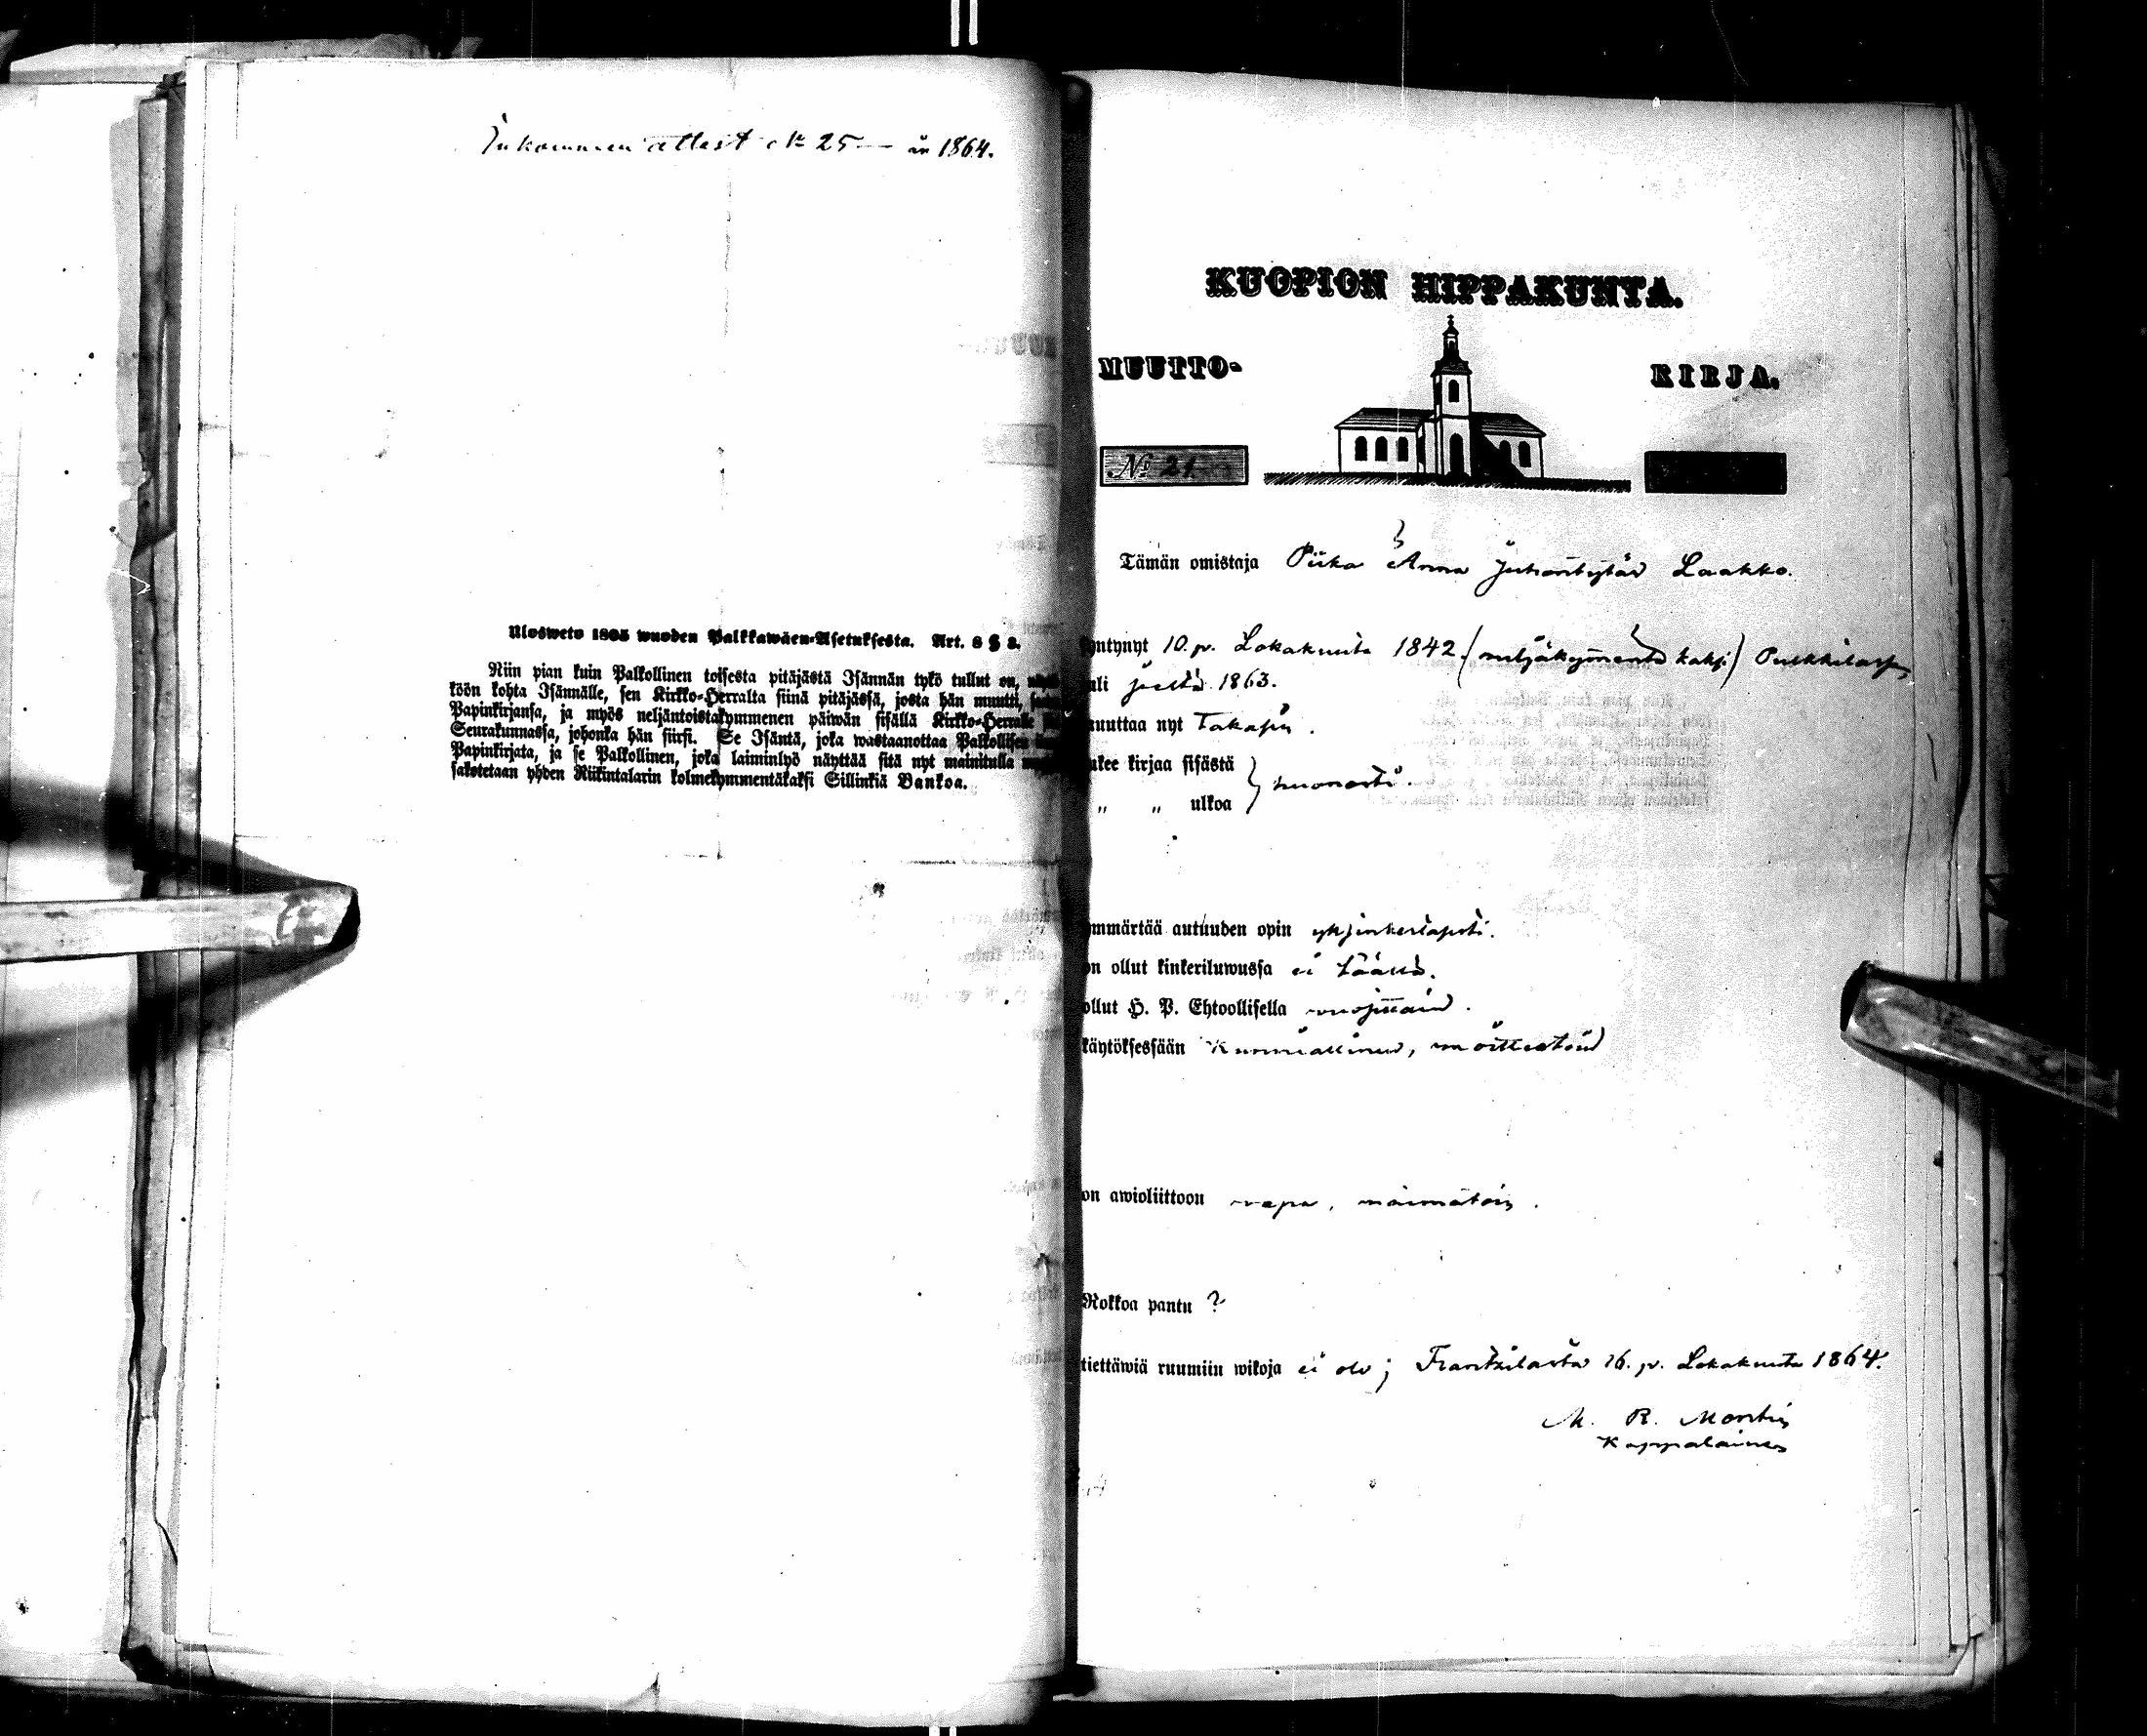 Inkommen attest N 25 — år 1864.
Ulosweto 1805 wuoden Palkkawäen-Asetuksesta. Art. 8 § 3.
Niin pian kuin Palkollinen toisesta pitäjästä Isännän tykö tullut on,
köön kohta Isännälle, sen Kirkko-Herralta siinä pitäjässä, josta hän muutti,
Papinkirjansa, ja myös neljäntoistakymmenen päiwän sisällä Kirkko-Herralle
Seurakunnassa, johonka hän siirsi. Se Isäntä, joka wastaanottaa Palkollisen
Papinkirjata, ja se Palkollinen, joka laiminlyö näyttää sitä nyt mainitulla
sakotetaan yhden Riikintalarin kolmekymmentäkaksi Sillinkiä Bankoa.
KUOPION HIPPAKUNTA.
MUUTTO- KIRJA.
No 21.
Tämän omistaja Piika Anna Juhontytär Laakko.
syntynyt 10. p. Lokakuuta 1842. (neljäkymmentä kaksi) Pulkkilassa
tuli sieltä 1863.
muuttaa nyt Takasin.
lukee kirjaa sisästä
" " ulkoa } huonosti.
ymmärtää autuuden opin yksinkertasesti.
on ollut kinkeriluwussa ei täällä.
ollut H. P. Ehtoollisella
käytöksessään Kunniallinen, moitteetoin
on awioliittoon wapa, naimatoin.
Rokkoa pantu ?
tiettäwiä ruumiin wikoja ei ole; Frantsilasta 16. p. Lokakuuta 1864.
M. R.
Kappalainen